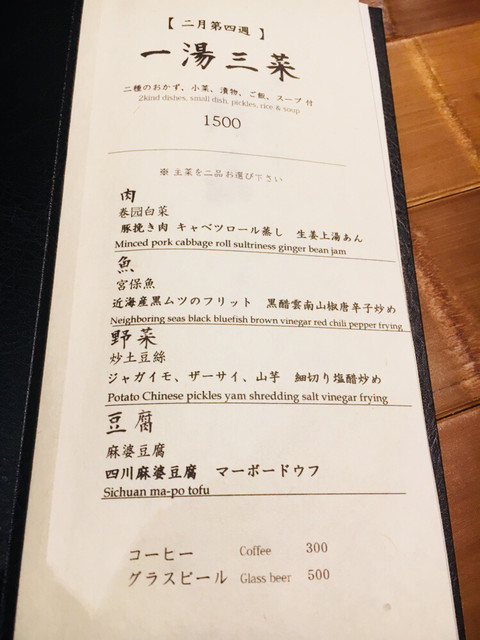 【 二月第四週 】
一湯三菜
二種のおかず、小菜、漬物、ご飯、スープ 付
2kind dishes, small dish, pickles, rice & soup
1500
※ 主菜を二品お選び下さい
肉
巻园白菜
豚挽き肉 キャベツロール蒸し 生姜上湯あん
Minced pork cabbage roll sultriness ginger bean jam
魚
宮保魚
近海産黒ムツのフリット 黒醋雲南山椒唐辛子炒め
Neighboring seas black bluefish brown vinegar red chili pepper frying
野菜
炒土豆絲
ジャガイモ、ザーサイ、山芋 細切り塩醋炒め
Potato Chinese pickles yam shredding salt vinegar frying
豆腐
麻婆豆腐
四川麻婆豆腐 マーボードウフ
Sichuan ma-po tofu
コーヒー Coffee 300
グラスビール Glass beer 500